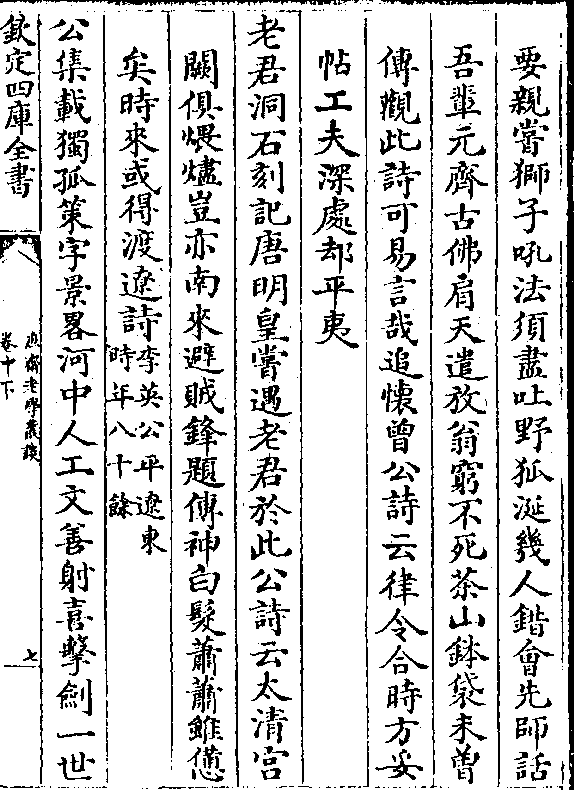 要親嘗獅子吼法須盡吐野狐涎幾人錯會先師話
吾輩元齊古佛肩天遣放翁窮不死茶山鉢袋未曽
傳觀此詩可易言哉追懐曾公詩云律令合時方妥
帖工夫深處却平夷
老君洞石刻記唐明皇嘗遇老君於此公詩云太清宫
闕俱煨燼豈亦南來避賊鋒題傳神白髮蕭蕭雖憊
矣時來或得渡遼詩李英公平遼東時年八十餘
公集載獨孤策字景畧河中人工文善射喜擊劍一世
欽定四庫全書
庶齋老學叢談
卷中下
七